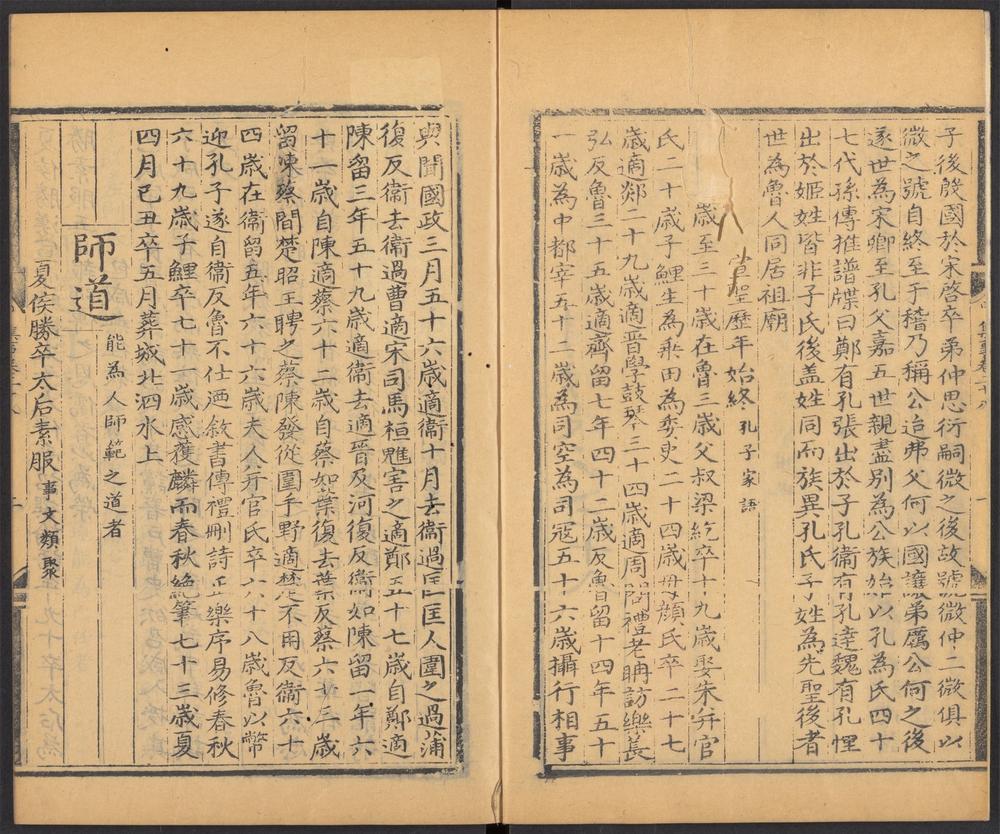 子後殷國於宋啓卒弟仲思衍嗣微之後故號微仲二微俱以
微之號自終至于稽乃稱公迨弗父何以國讓弟厲公何之後
遂世為宋卿至孔父嘉五世親盡別為公族始以孔為氏四十
七代孫傳推譜牒曰鄭有孔張出於子孔衞有孔達魏有孔悝
出於姬姓皆非子氏後盖姓同而族異孔氏子姓為先聖後者
世為魯人同居祖廟
聖歷年始終孔子家語
歲至三十歲在魯三歲父叔梁紇卒十九歲娶朱幷官
氏二十歲子鯉生為乘田為委吏二十四歲母顏氏卒二十七
歲適郯二十九歲適晉學鼓琴三十四歲適周問禮老聃訪樂萇
弘反魯三十五歲適齊留七年四十二歲反魯留十四年五十
一歲為中都宰五十二歲為司空為司寇五十六歲攝行相事
與聞國政三月五十六歲適衞十月去衞過匡匡人圍之過蒲
復反衞去衞過曹適宋司馬桓魋害之適鄭五十七歲自鄭適
陳留三年五十九歲適衞去適晉及河復反衞如陳留一年六
十一歲自陳適蔡六十二歲自蔡如葉復去葉反蔡六十三歲
留陳蔡間楚昭王聘之蔡陳發徒圍于野適楚不用反衞六十
四歲在衞留五年六十六歲夫人幷官氏卒六十八歲魯以幣
迎孔子遂自衞反魯不仕迺敘書傳禮刪詩正樂序易修春秋
六十九歲子鯉卒七十一歲感獲麟而春秋絶筆七十三歲夏
四月己丑卒五月葬城北泗水上
師道能為人師範之道者
夏侯勝卒太后素服事文類聚